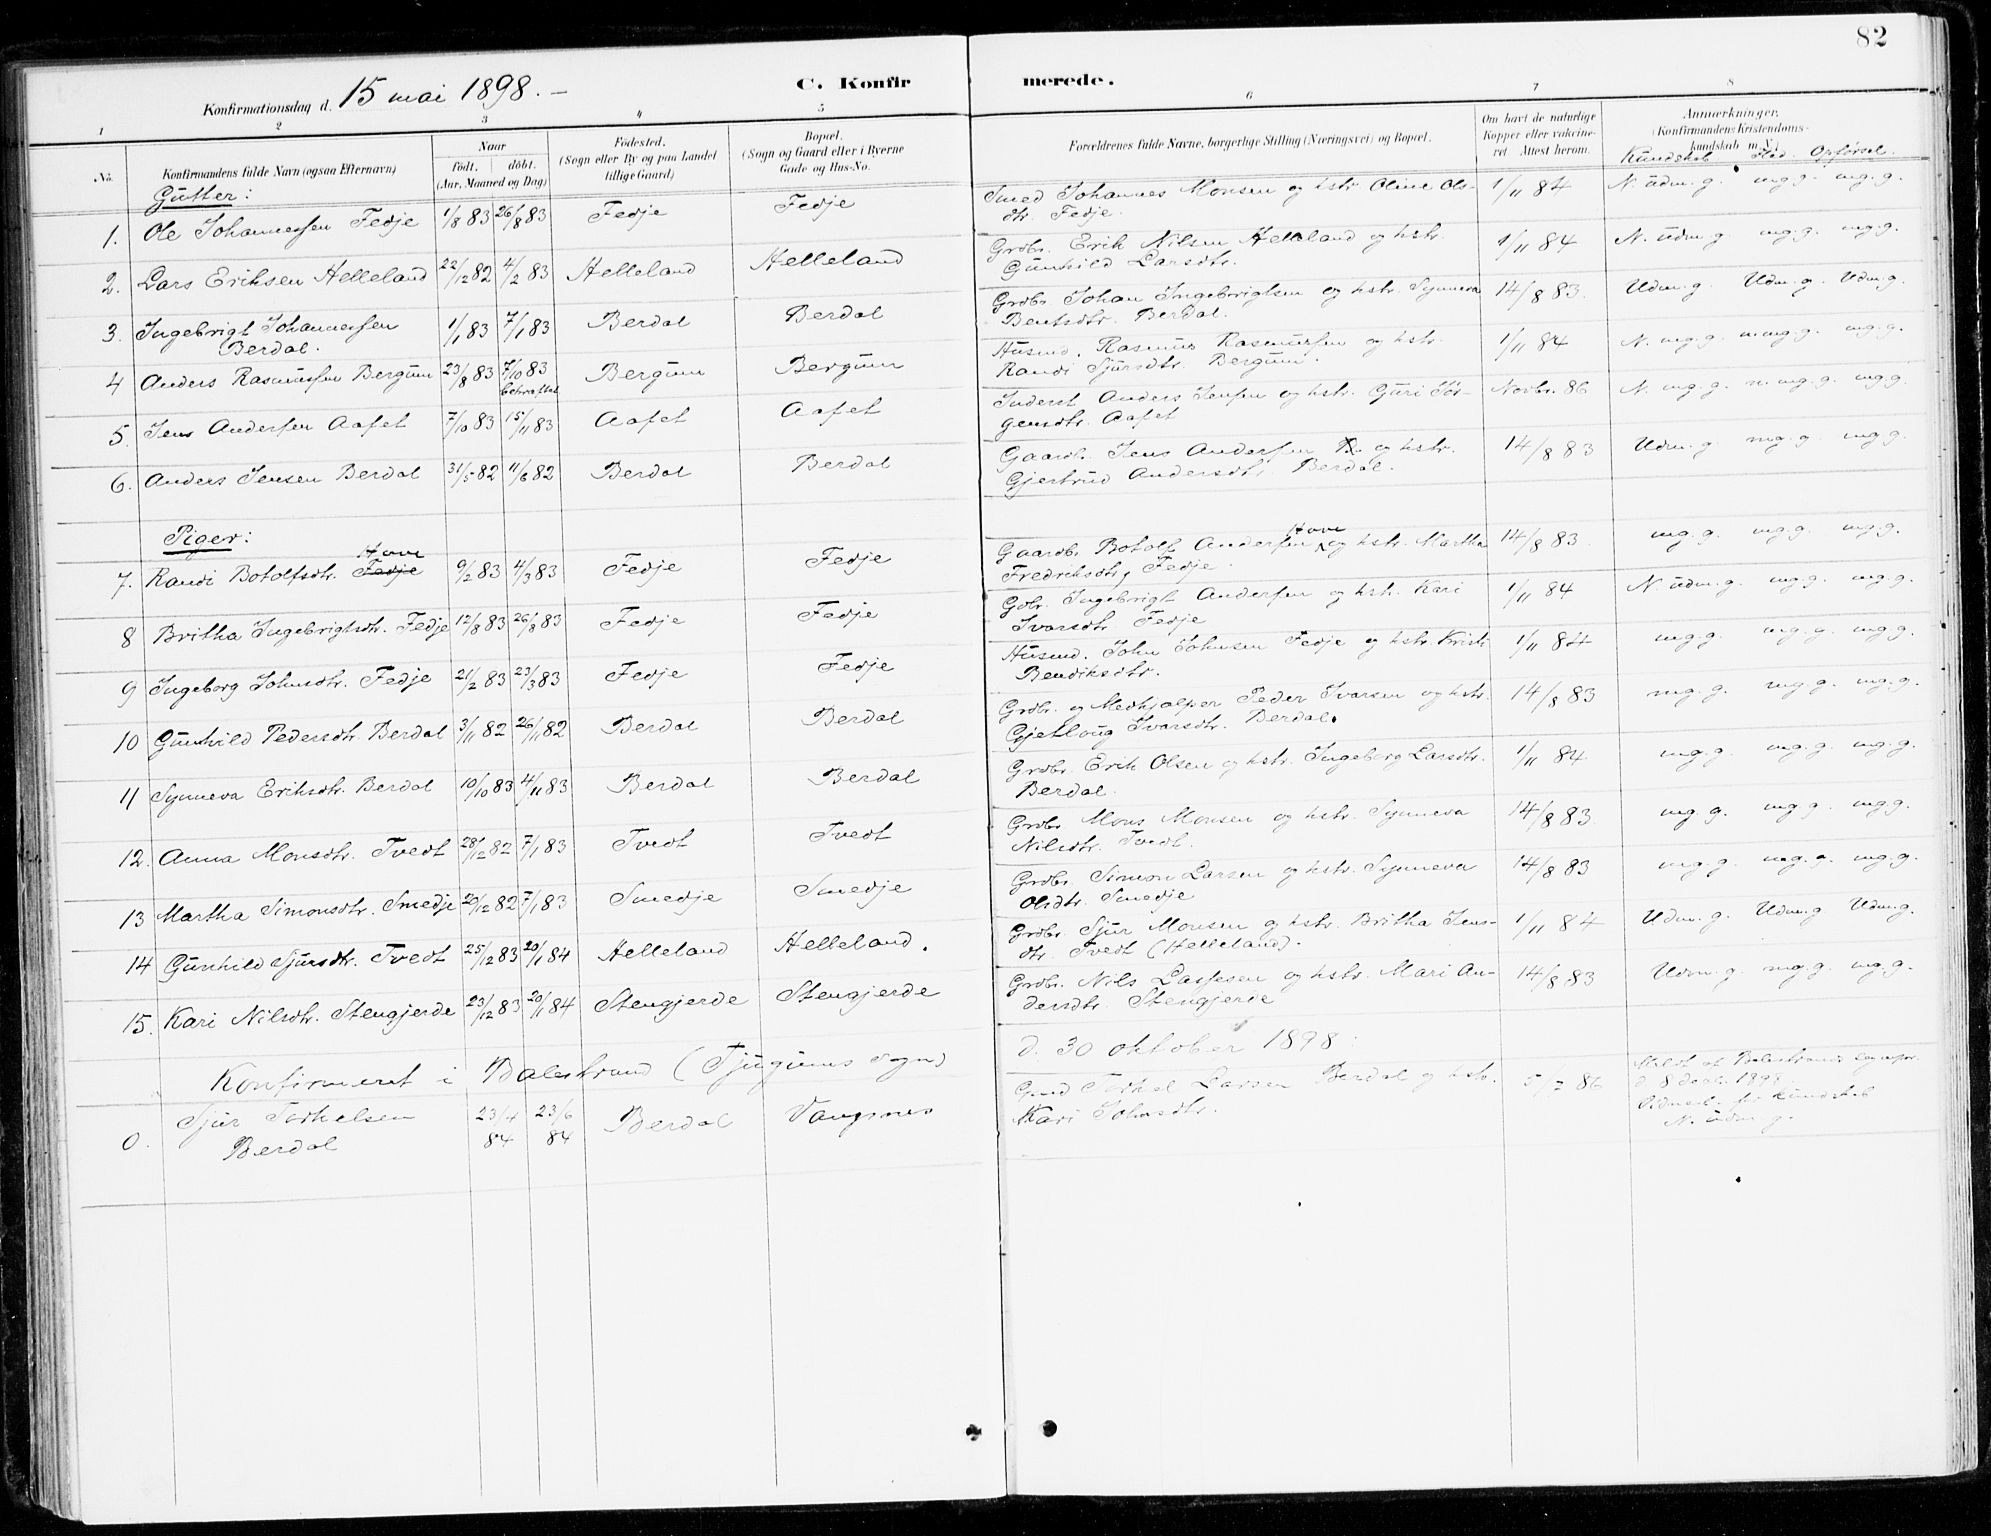 82
Konfirmationsdag d. 15 mai 1898. –
C. Konfir merede.
1 2 3 4 5 6 7 8
No. Konfirmandens fulde Navn (ogsaa Efternavn) Naar Födt. döbt. (Aar, Maaned og Dag) Födested. (Sogn eller By og paa Landet tillige Gaard) Bopæl. (Sogn og Gaard eller i Byerne Gade og Hus-No. Forældrenes fulde Navne, borgerlige Stilling (Næringsvei) og Bopæl. Om havt de naturlige Kopper eller vakcineret. Attest herom. Anmærkninger, (Konfirmandens Kristendomskundskab m. V.)
Kundskab Flid. Opførsel.
Gutter:
1. Ole Johannessen Fedje 1/8 83 26/8 83 Fedje Fedje Smed Johannes Monsen og hstr. Oline Ols-
dtr. Fedje. 1/11 84 N. udm. g. mg. g. mg. g.
2. Lars Eriksen Helleland 22/12 82 4/2 83 Helleland Helleland Grdbr. Erik Nilsen Helleland og hstr.
Gunhild Larsdtr. 1/11 84 N. udm. g. mg. g. mg. g.
3. Ingebrigt Johannessen
Berdal. 1/1 83 7/1 83 Berdal Berdal Grdbr. Johan Ingebrigtsen og hstr. Synneva
Bentsdtr. Berdal. 14/8 83. Udm. g. Udm. g. Udm. g.
4 Anders Rasmussen Bergum 23/8 83 7/10 83 bekræftet Bergum Bergum Husmd. Rasmus Rasmussen og hstr.
Randi Sjursdtr. Bergum. 1/11 84 N. mg. g. n. mg. g. mg. g.
5. Jens Andersen Aafet 7/10 83 15/11 83 Aafet Aafet Inderst Anders Jensen og hstr. Guri Jør-
gensdtr. Aafet Novbr. 86 N. mg. g. n. mg. g. mg g.
6. Anders Jensen Berdal 31/5 82 11/6 82 Berdal Berdal Gaardb. Jens Andersen og hstr.
Gjertrud Andersdtr. Berdal. 14/8 83 Udm. g. mg. g. mg g.
Piger:
7. Randi Botolfsdtr. Fedje Hove 9/2 83 4/3 83 Fedje Fedje Gaardbr. Botolf Andersen Hove og hstr. Martha
Fredriksdtr, Fedje. 14/8 83. mg. g. mg. g. mg. g.
8 Britha Ingebrigtsdtr. Fedje 12/8 83 26/8 83 Fedje Fedje Gbr. Ingebrigt Andersen og hstr. Kari
Ivarsdtr. Fedje 1/11 84 N. udm. g. mg. g. mg. g.
9 Ingeborg Johnsdtr. Fedje 21/2 83 23/3 83 Fedje Fedje Husmd. John Johnsen Fedje og hstr. Kristi
Bendiksdtr. 1/11 84 mg. g. mg. g. mg. g.
10 Gunhild Pedersdtr. Berdal 3/11 82 26/11 82 Berdal Berdal Grdbr. og Medhjælper Peder Ivarsen og hstr.
Gjetloug Ivarsdtr. Berdal. 14/8 83 mg. g. mg. g. mg. g.
11 Synneva Eriksdtr. Berdal 10/10 83 4/11 83 Berdal Berdal Grdbr. Erik Olsen og hstr. Ingeborg Larsdtr.
Berdal. 1/11 84 mg. g. mg. g. mg. g.
12. Anna Monsdtr. Tvedt 28/12 82 7/1 83 Tvedt Tvedt Grdbr. Mons Monsen og hstr. Synneva
Nilsdtr. Tvedt. 14/8 83. mg. g. mg. g. mg g.
13 Martha Simonsdtr. Smedje 20/12 82 7/1 83 Smedje Smedje Grdbr. Simon Larsen og hstr. Synneva
Olsdtr. Smedje 14/8 83 mg. g. mg. g. mg. g.
14 Gunhild Sjursdtr. Tvedt 25/12 83 20/1 84 Helleland Helleland. Grdbr. Sjur Monsen og hstr. Britha Jens-
dtr. Tvedt (Helleland). 1/11 84 Udm. g. Udm. g Udm. g.
15. Kari Nilsdtr. Stengjerde 23/12 83 20/1 84 Stengjerde Stengjerde Grdbr. Nils Lassesen og hstr. Mari An-
dersdtr. Stengjerde 14/8 83 Udm. g mg. g. mg. g.
Konfirmeret i Balestrand (Tjugums sogn) d. 30 oktober 1898:
0. Sjur Torkelsen
Berdal 23/4 84 23/6 84 Berdal Vangsnes Gmd Torkel Larsen Berdal og hstr.
Kari Johnsdtr. 5/7 86 Meldt af Balestrands sognepr.
d. 8 decbr. 1898
for kundskab
N. udm. g.